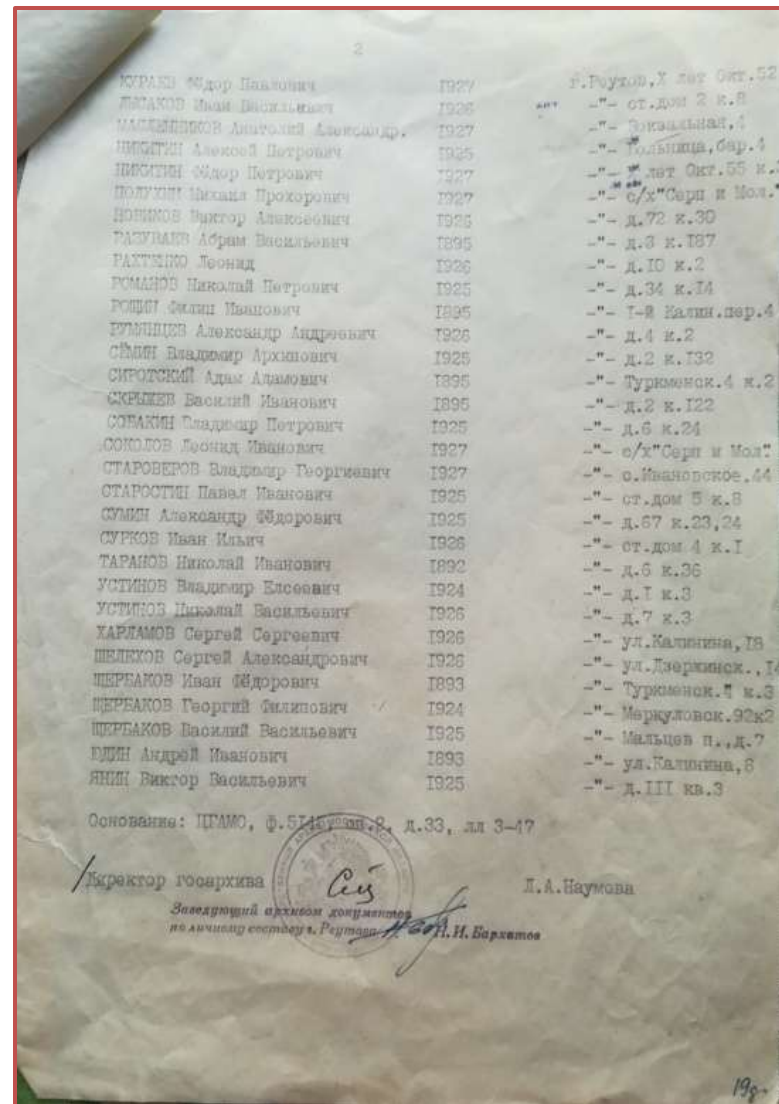 2
КУРАЕВ Фёдор Павлович 1927 г.Реутов,Х лет Окт.52
ЛЫСАКОВ Иван Васильевич 1926 -"- ст.дом 2 к.8
МАСЛЕННИКОВ Анатолий Александр. 1927 -"- Вокзальная,4
НИКИТИН Алексей Петрович 1925 -"- Больница,бар.4
НИКИТИН Фёдор Петрович 1927 -"- лет Окт.55 к.
ПОЛУХИН Михаил Прохорович 1927 -"- с/х"Серп и Мол."
НОВИКОВ Виктор Алексеевич 1926 -"- д.72 к.30
РАЗУВАЕВ Абрам Васильевич 1895 -"- д.3 к.187
РАХТЕНКО Леонид 1926 -"- д.10 к.2
РОМАНОВ Николай Петрович 1925 -"- д.34 к.14
РОЩИН Филип Иванович 1895 -"- I-й Калин.пер.4
РУМЯНЦЕВ Александр Андреевич 1926 -"- д.4 к.2
СЁМИН Владимир Архипович 1925 -"- д.2 к.132
СИРОТСКИЙ Адам Адамович 1895 -"- Туркменск.4 к.2
СКРЫЖЕВ Василий Иванович 1895 -"- д.2 к.122
СОБАКИН Владимир Петрович 1925 -"- д.6 к.24
СОКОЛОВ Леонид Иванович 1927 -"- с/х"Серп и Мол".
СТАРОВЕРОВ Владимир Георгиевич 1927 -"- с.Ивановское.44
СТАРОСТИН Павел Иванович 1925 -"- ст.дом 5 к.8
СУМИН Александр Фёдорович 1925 -"- д.67 к.23,24
СУРКОВ Иван Ильич 1926 -"- ст.дом 4 к.I
ТАРАНОВ Николай Иванович 1892 -"- д.6 к.36
УСТИНОВ Владимир Елсеевич 1924 -"- д.I к.3
УСТИНОВ Николай Васильевич 1926 -"- д.7 к.3
ХАРЛАМОВ Сергей Сергеевич 1926 -"- ул.Калинина,18
ШЕЛЕХОВ Сергей Александрович 1926 -"- ул.Дзержинск.,14
ЩЕРБАКОВ Иван Фёдорович 1893 -"- Туркменск. к.3
ЩЕРБАКОВ Георгий Филипович 1924 -"- Меркуловск.92к2
ЩЕРБАКОВ Василий Васильевич 1925 -"- Мальцев п.,д.7
ЮДИН Андрей Иванович 1893 -"- ул.Калинина,8
ЯНИН Виктор Васильевич 1925 -"- д.III кв.3
Основание: ЦГАМО, ф.5145, оп.2, д.33, лл 3-47
Директор госархива Л.А.Наумова
Заведующий архивом документов
по личному составу г. Реутова Н. И. Бархатов